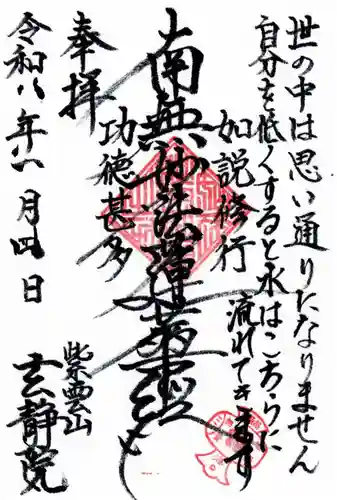 世の中は思い通りたなりません
自分を低くすると水はこちらに
流れてきます
如説修行
南無妙法蓮華経
功徳甚多
奉拝
令和八年一月四日
紫雲山
玄静院